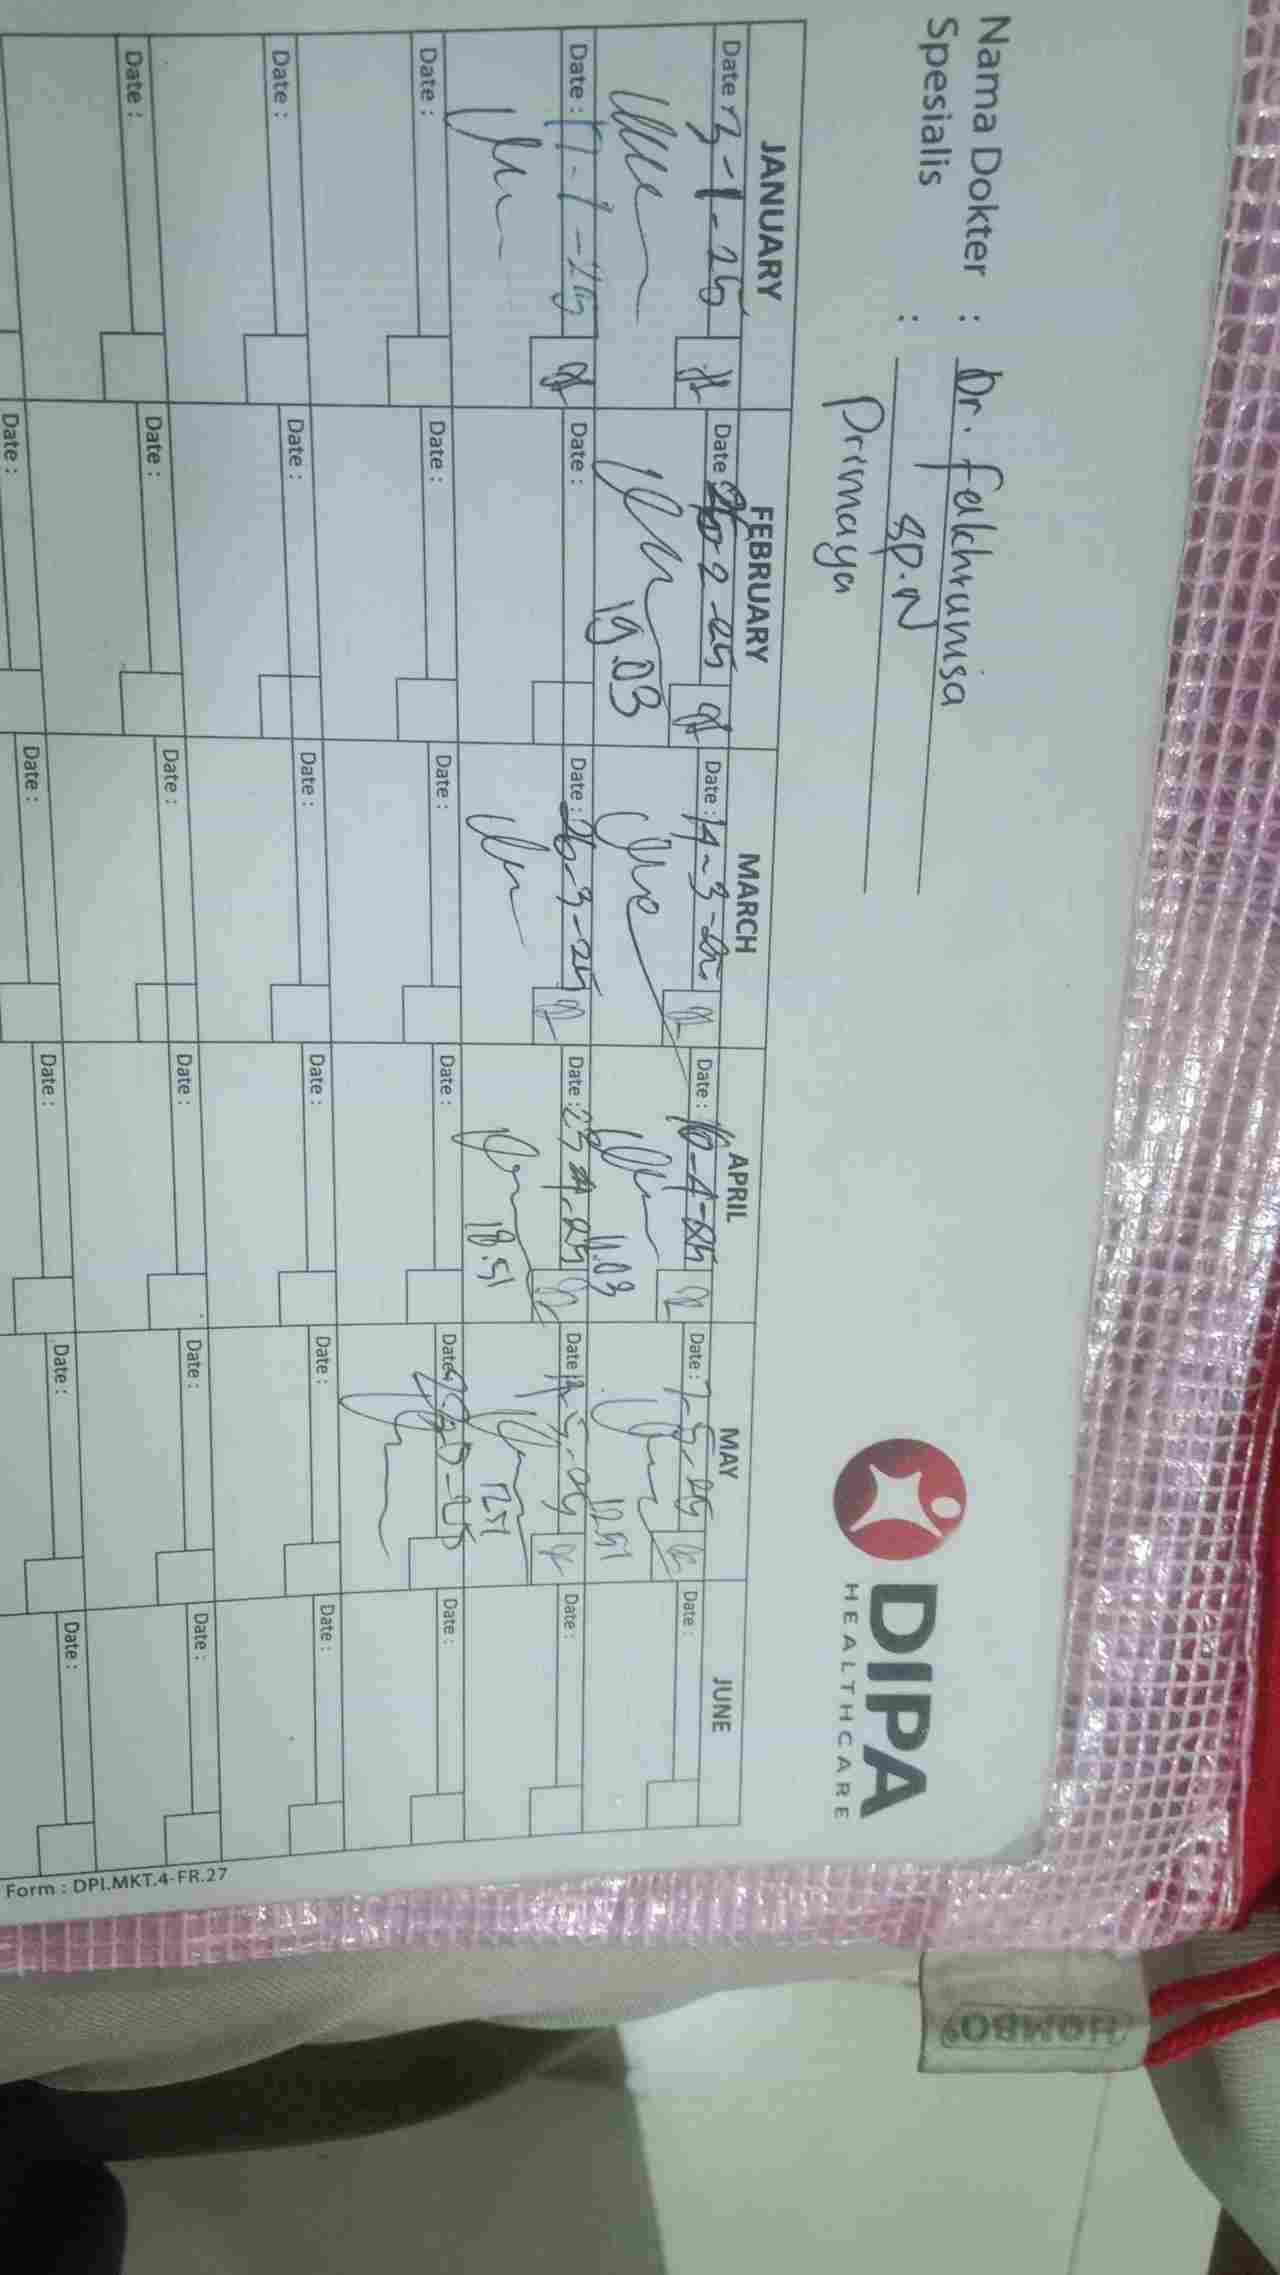 Nama Dokter : Dr. Fakhrunisa
Spesialis : sp.N
Primaya
DIPA
HEALTHCARE
JANUARY FEBRUARY MARCH APRIL MAY JUNE
Date : 3-1-25 Date : 26-2-25 Date : 14-3-25 Date : 16-4-25 Date : 7-5-25 Date :
19.03 11.03 12.51
Date : 17-1-25 Date : Date : 26-3-25 Date : 23-4-25 Date : Date :
18.51
Date : Date : Date : Date : Date : Date :
Date : Date : Date : Date : Date : Date :
Date : Date : Date : Date : Date : Date :
Date : Date : Date : Date : Date :
Form : DPI.MKT.4-FR.27
HOMBO®